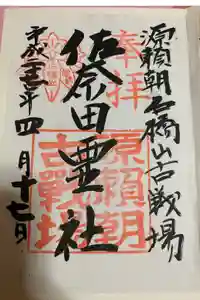 源頼朝石橋山古戦場
奉拝
佐奈田霊社
源頼朝
古戰場
平成二十五年四月十七日